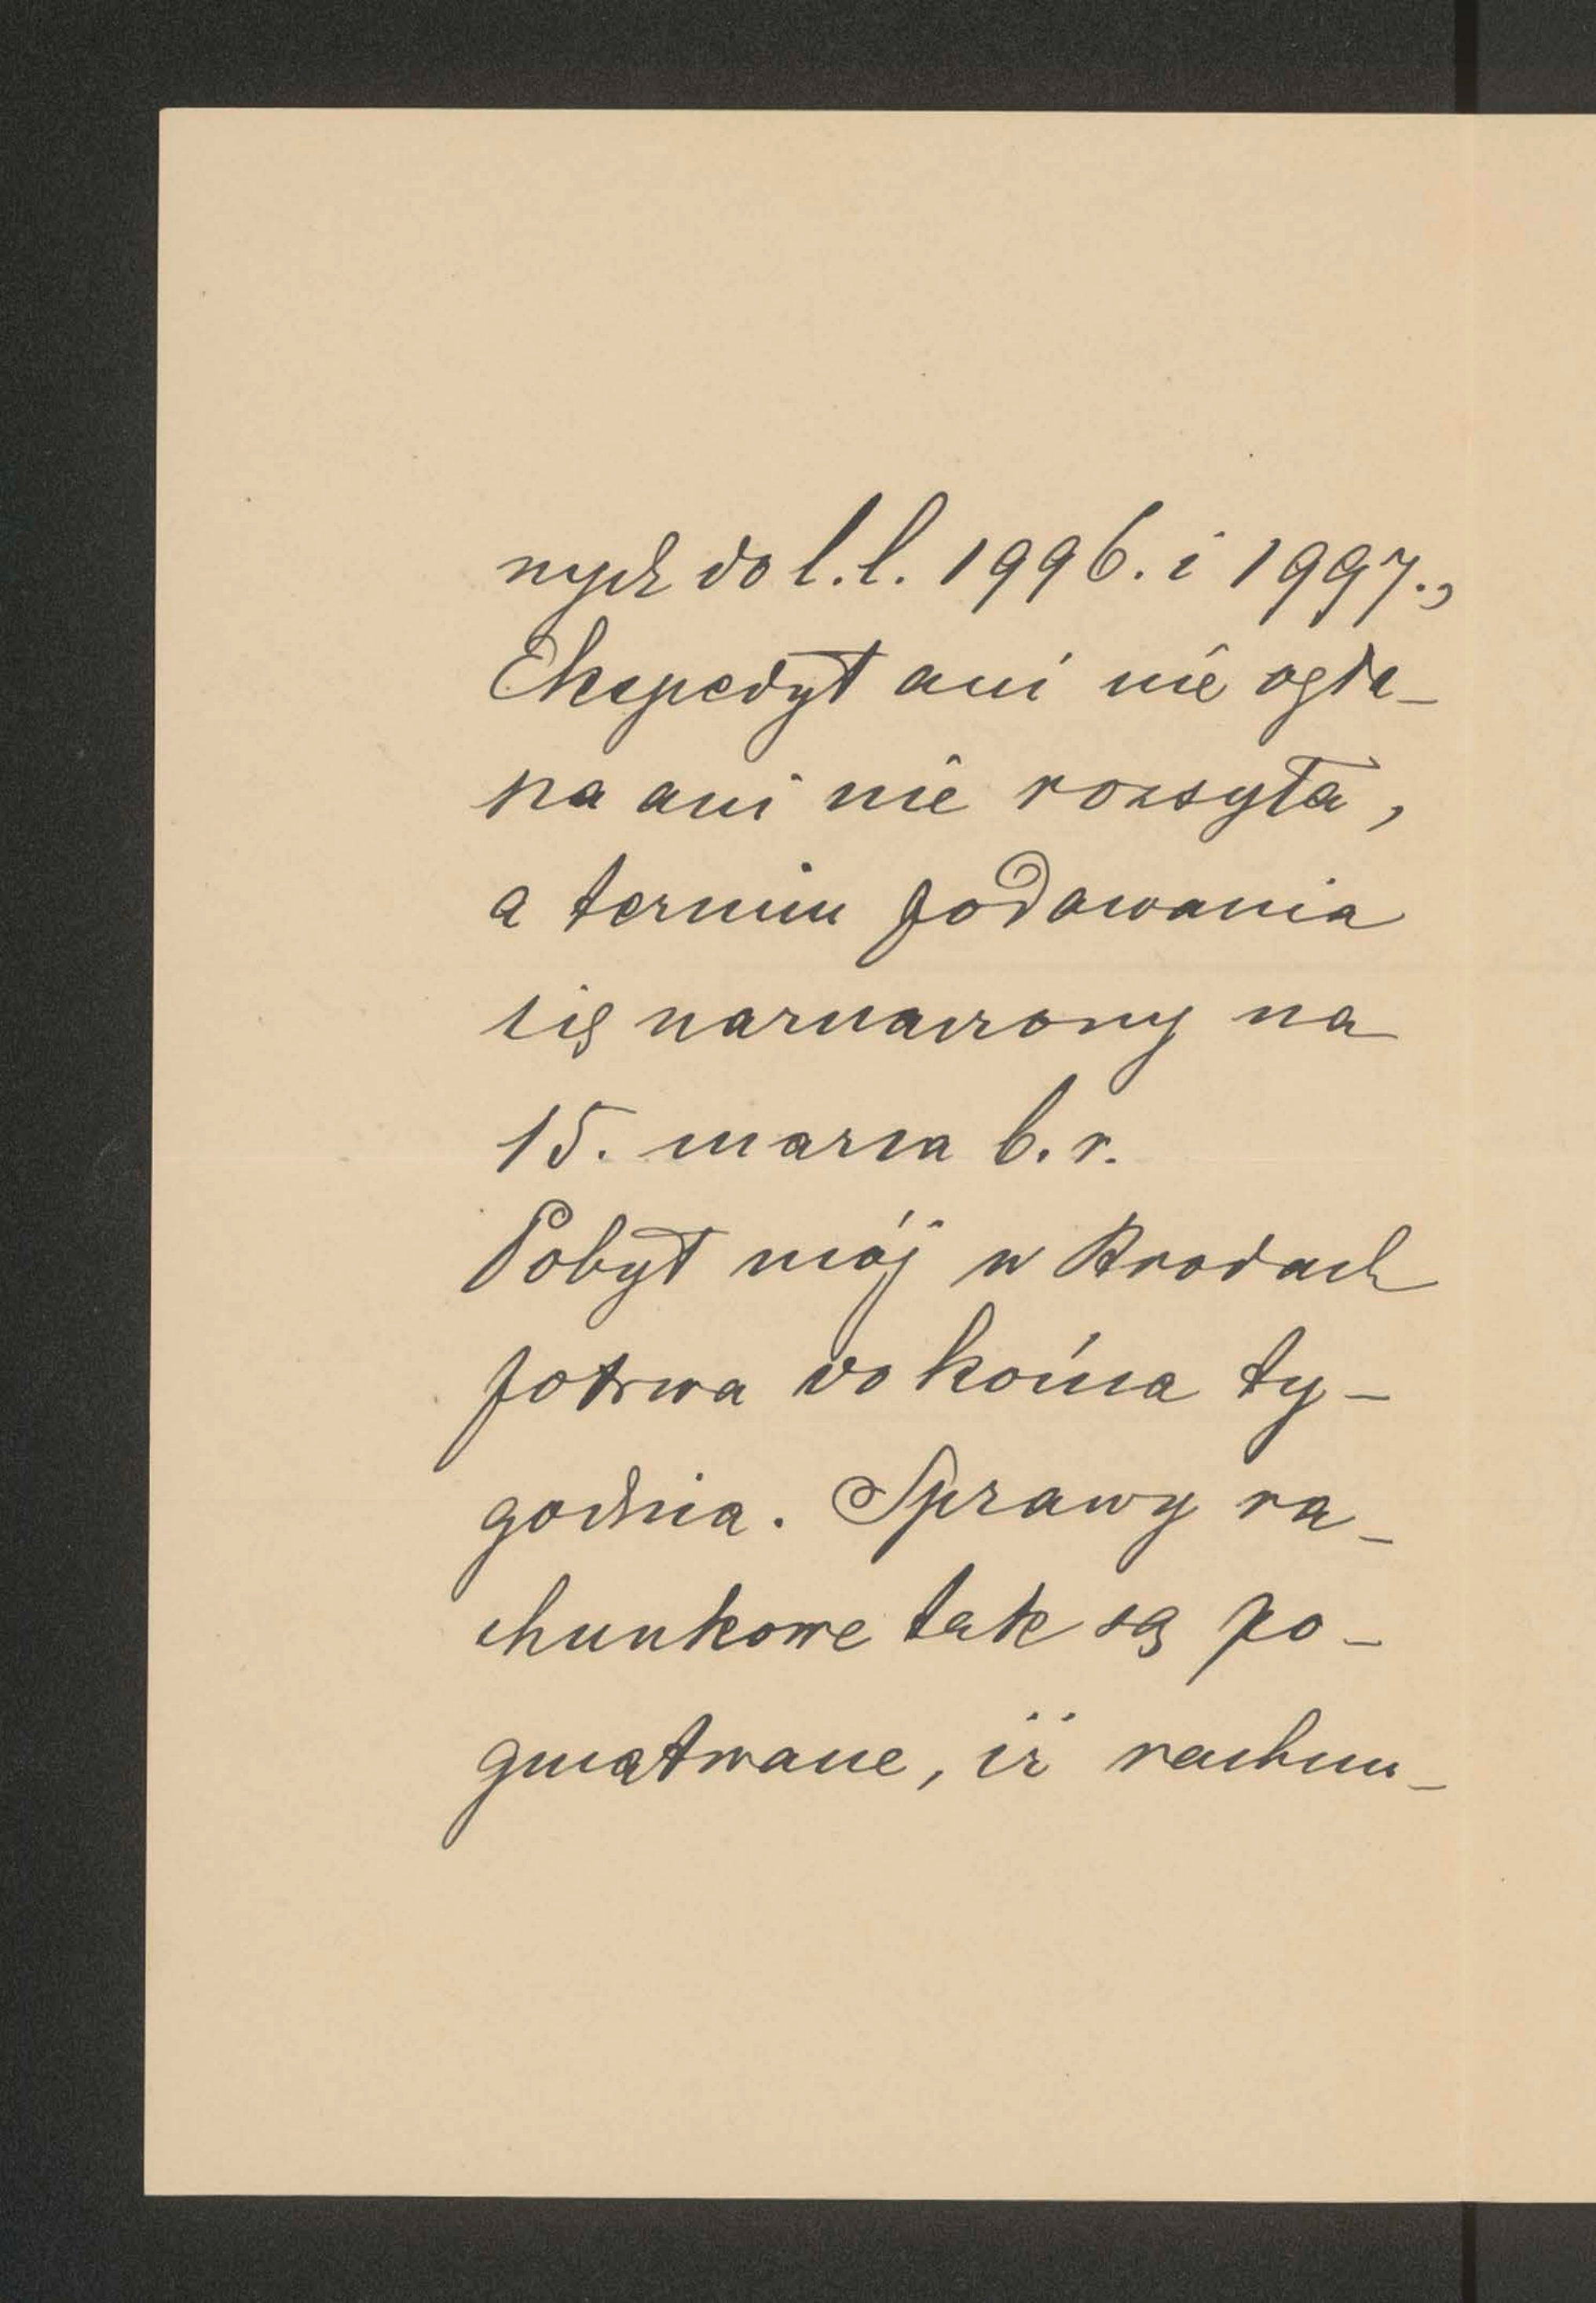 nych do l.l. 1996. i 1997.,
Ekspedyt ani nie ogła-
sza ani nie rozsyła,
a termin podawania
się naznaczony na
15. marca b.r.
Pobyt mój w Brodach
potrwa do końca ty-
godnia. Sprawy ra-
chunkowe tak są po-
gmatwane, iż rachun-